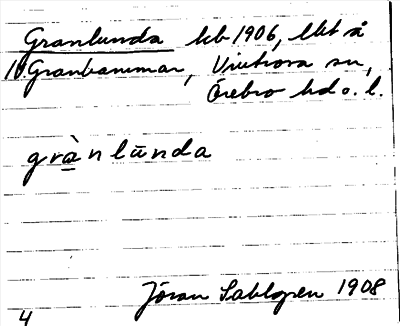 Granlunda kb 1906, lht å
10 Granhammar, Vintrosa sn,
Örebro hd o. l.
grànlūnda
Jöran Sahlgren 1908
4